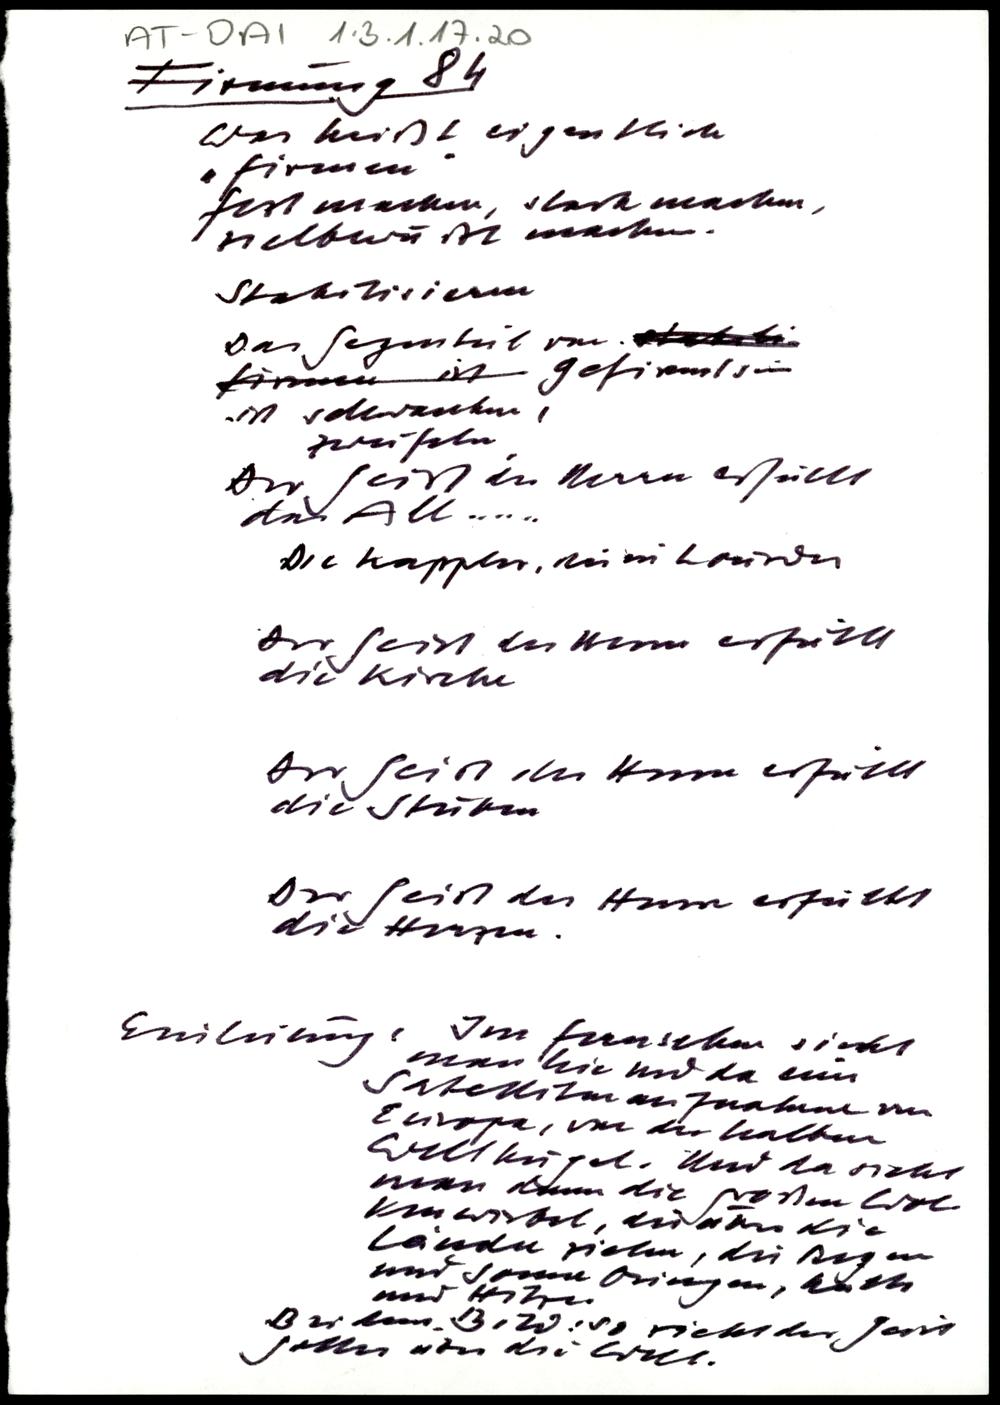 AT-DAI 1.3.1.17.20
Firmung 84
Was heißt eigentlich
"firmen"
fest machen, stark machen,
zielbewußt machen.
Stabilisieren
Das Gegenteil von stabili
firmen ist gefirmt sein
ist schwanken,
zweifeln
Der Geist des Herrn erfüllt
das All.....
Die Kappler, die in Lourdes
Der Geist des Herrn erfüllt
die Kirche
Der Geist des Herrn erfüllt
die Stuben
Der Geist des Herrn erfüllt
die Herzen.
Einleitung: Im Fernsehen sieht
man hie und da eine
Satellitenaufnahme von
Europa, von der halben
Weltkugel. Und da sieht
man dann die großen Wol-
kenwirbel, die über die
Länder ziehen, die Regen
und Sonne bringen, Kälte
und Hitze.
Bei dem Bild: so zieht der Geist
Gottes über die Welt.